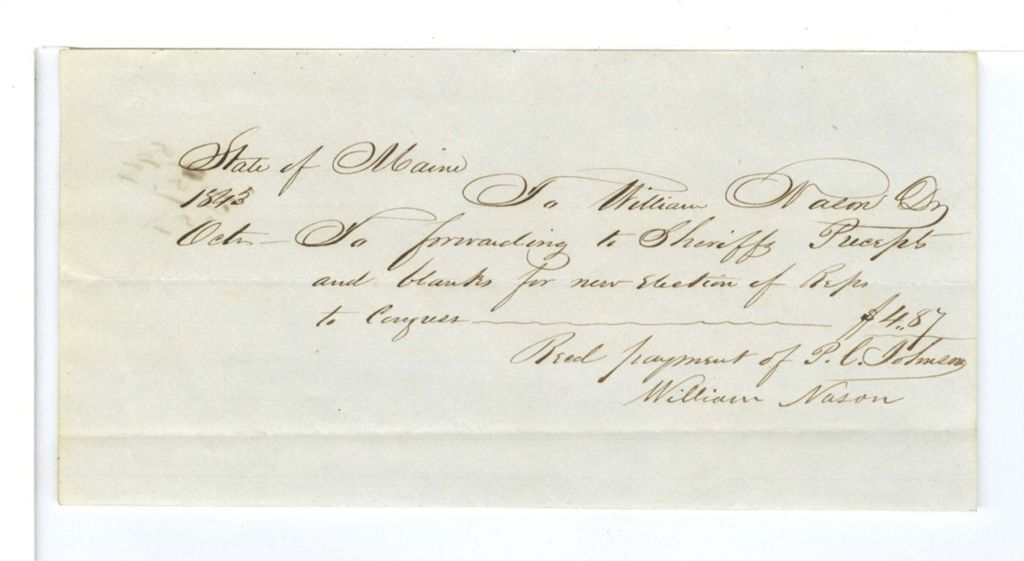 State of Maine
1843 To William Nason Dr
Octr – To forwarding to Sheriffs Precepts
and blanks for new Election of Reps
to Congress $4.87
Recd payment of P. C. Johnson
William Nason